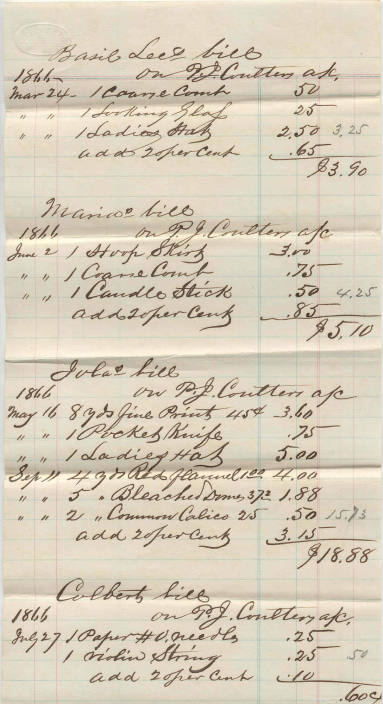 Basil Lee's bill
1866 on P.J. Coulters a/c.
Mar 24 1 Coarse Comb 50
" " 1 Looking Glass 25
" " 1 Ladies Hat 2.50 3.25
add 20 per Cent .65
$3.90
Maria's bill
1866 on P.J. Coulters a/c
June 2 1 Hoop Skirt 3.00
" " 1 Coarse Comb .75
" " 1 Candle Stick .50 4.25
add 20 per Cent .85
$5.10
bill
1866 on P.J. Coulters a/c
May 16 8 yds fine Print 45¢ 3.60
" " 1 Pocket Knife .75
" " 1 Ladies Hat 5.00
Sep 11 4 yds Red flannel 1.00 4.00
" " 5 " Bleached Domes 37½ 1.88
" " 2 " Common Calico 25 .50 15.73
add 20 per Cent 3.15
$18.88
Colberts bill
1866 on P.J. Coulters a/c.
July 27 1 Paper needles .25
1 Violin String .25 .50
add 20 per Cent .10
.60¢